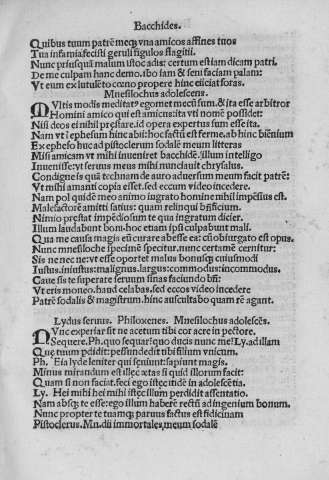 Bacchides.
Quibus tuum patrē meq̃ vna amicos affines tuos
Tua infamia fecisti geruli figulos flagitii.
Nunc priusquā malum istoc adis: certum est iam dicam patri.
De me culpam hanc demo. ibo iam & seni faciam palam:
Vt eum ex lutulēto cœno propere hinc eiiciat foras.
Mnesilochus adolescens.
MVltis modis meditat' egomet mecū sum. & ita esse arbitror
Homini amico qui est amicus ita vti nomē possidet:
Nisi deos ei nihil prȩstare. id opera expertus sum esse ita.
Nam vt ī ephesum hinc abii: hoc factū est ferme. ab hinc biēnium
Ex epheso huc ad pistoclerum sodalē meum litteras
Misi amicam vt mihi inueniret bacchidē. illum intelligo
Inuenisse: vt seruus meus mihi nunciauit chrysalus.
Condigne is quā technam de auro aduersum meum facit patrē:
Vt mihi amanti copia esset. sed eccum video incedere.
Nam pol quidē meo animo ingrato homine nihil impēsius est.
Malefactorē amitti satius: quam relinqui bn̄ficium.
Nimio prȩstat impēdiosum te qua ingratum dicier.
Illum laudabunt boni. hoc etiam ipsi culpabunt mali.
Qua me causa magis cū curare abesse est: cū obiurgato est opus.
Nunc mnesiloche specimē specitur. nunc certamē cernitur:
Sis ne nec ne: vt esse oportet malus bonusq̃ cuiusmodi
Iustus. iniustus: malignus. largus: commodus: incommodus.
Caue sis te superare seruum sinas faciundo bn̄:
Vt eris moneo. haud celabas. sed eccos video incedere
Patrē sodalis & magistrum. hinc auscultabo quam rē agant.
Lydus seruus. Philoxenes. Mnesilochus adolescēs.
NVnc experiar sit ne acetum tibi cor acre in pectore.
Sequere. Ph. quo sequar: quo ducis nunc me? Ly. ad illam
Que tuum pdidit: pessundedit tibi filium vnicum.
Ph. Eia lyde leniter qui sȩuiunt: sapiunt magis.
Minus mirandum est illȩc ȩtas si quid illorum facit:
Quam si non faciat. feci ego istec itidē in adolescētia.
Ly. Hei mihi hei mihi istȩc illum perdidit assentatio.
Nam absq̃ te esse: ego illum haberē rectū ad ingenium bonum.
Nunc propter te tuamq̃ prauus factus est fiduciam
Pistoclerus. Mn. dii immortales, meum sodalē